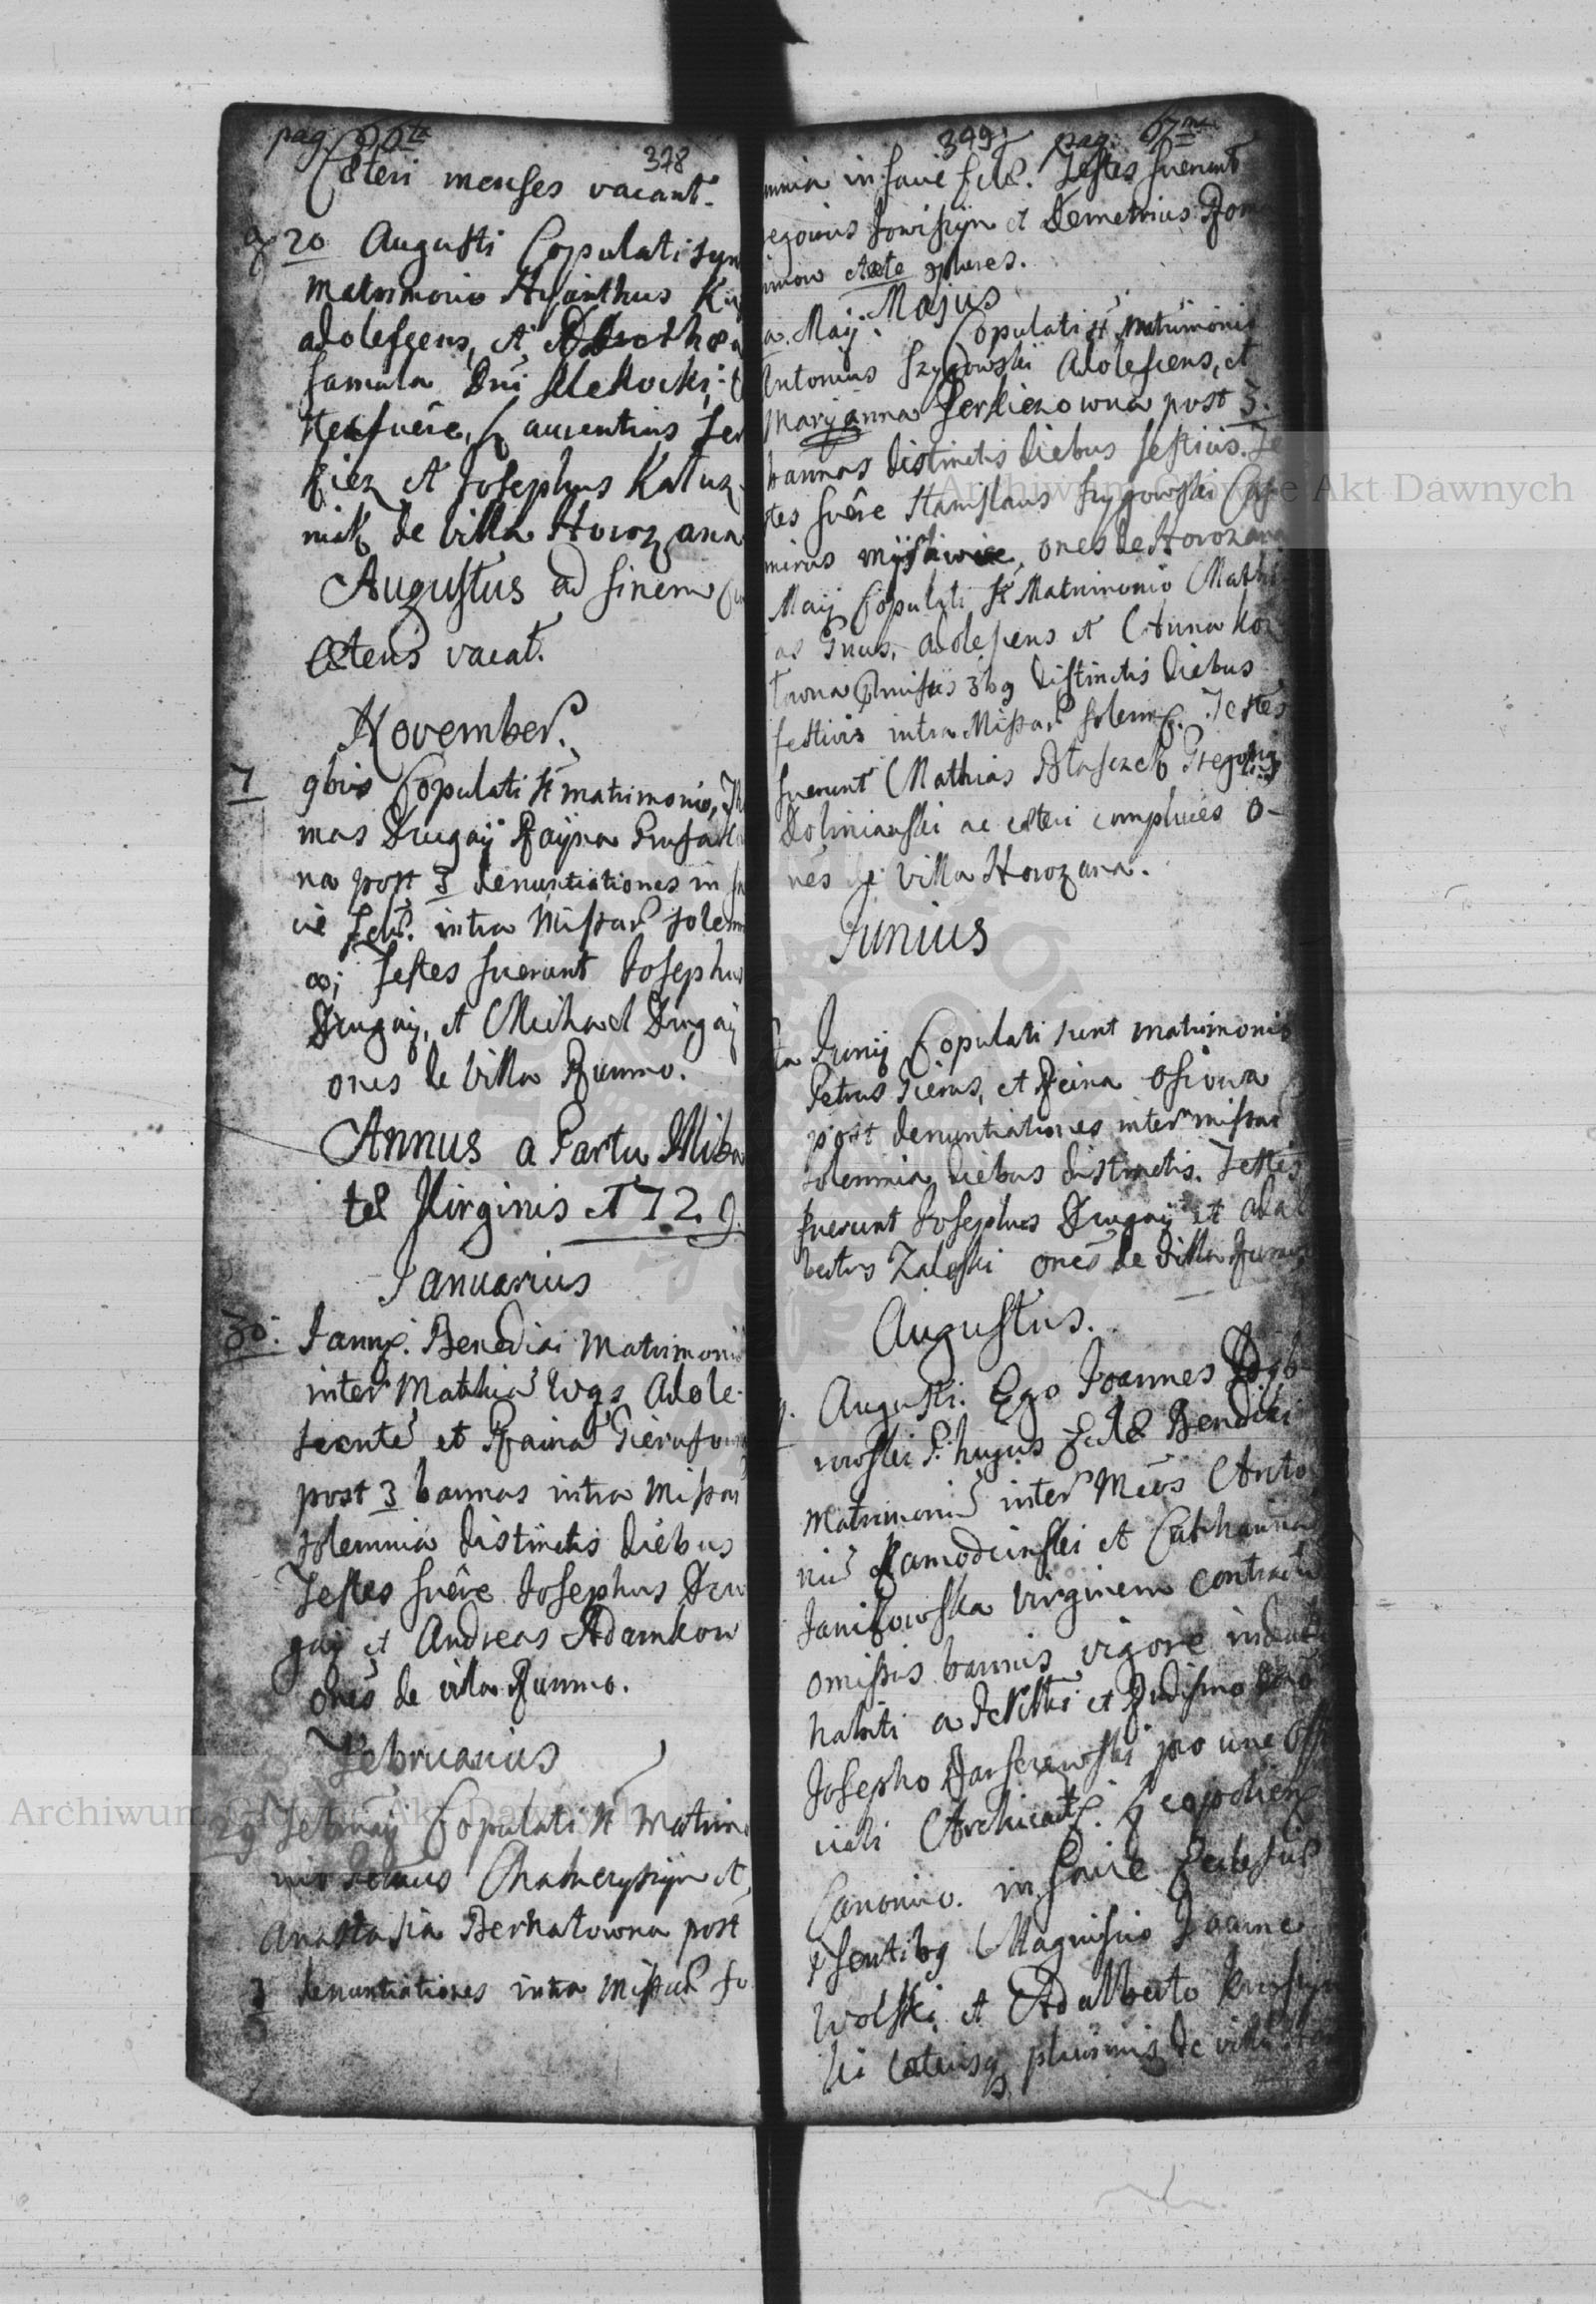 pag. 66ta
378
Cæteri menses vacant.
20 Augusti Copulati sun
matrimonio Hyacinthus
adolescens, et Dorothea
famula Dni
stes fuêre, Laurentius Fer
kiez et Josephus Katuz
nik de Villa Horozana
Augustus ad finem
Cæteris vacat.
November.
7 9bris Copulati st matrimonio, Tho
mas Drugay Rayna Prusa
na post 3 denuntiationes in fa
cie Eccl. intra Missar solem
Testes fuerunt Josephus
Drugay, et Michael Drugay
ones de Villa Rumno.
Annus a Partu Illiba
tæ Virginis 1729.
Januarius
30. Janry. Benedixi Matrimoniu
inter Mathia Wąs Adole-
scente et Raina Pierusow
post 3 bannas intra Missar
solemnia distinctis diebus
Testes fuêre Josephus Dru
gay et Andreas Adamkow
ones de villa Rumno.
Februarius
29 Febuarij Copulati st Matrimo
nio
Anastasia Bernatowna post
3 denuntiationes intra Missar so
399 pag. 67ma
mnia in facie Eccl. Testes fuerunt
egorius et Demetrius Rom
plures.
Majus
a. Maij. Copulati st Matrimonio
Antonius Szygowski Adolescens, et
Maryanna Ferkiezowna post 3.
bannas distinctis diebus festivis. Te
stes fuêre Stanislaus Szygowski Casi
mirus myśliwice, ones de Horozana
Maij Copulati st Matrimonio Mathi
as Gnus, Adolescens et Anna Koz
łowna Pmissis 3bg distinctis diebus
festivis intra Missar solemn. Testes
fuerunt Mathias Błaszczek Gregorius
Doliniański ac cæteri complures o-
nes de Villa Horozana.
Junius
ta Junij Copulati sunt matrimonio
Petrus Pierus, et Reina Osiowa
post denuntiationes inter missar
solemnia diebus distinctis. Testes
fuerunt Josephus Drugay et Adal
bertus Zaleski ones de Villa Rumno
Augustus.
Augusti. Ego Joannes Dąb
rowski P. hujus Eclæ Benedixi
Matrimoniu inter Meos Anto
niu Ramodzinski et Catharina
Janikowska Virginem contractu
omissis bannis vigore indulti
habiti a Perillri et Rndissimo Dno
Josepho pro vice Offi
ciali Archicath. Leopolien
Canonico. in facie Ecclesiæ
Psentibg Magnifico Joanne
Wolski et Adalberto
ki cæterisq plurimis de villa